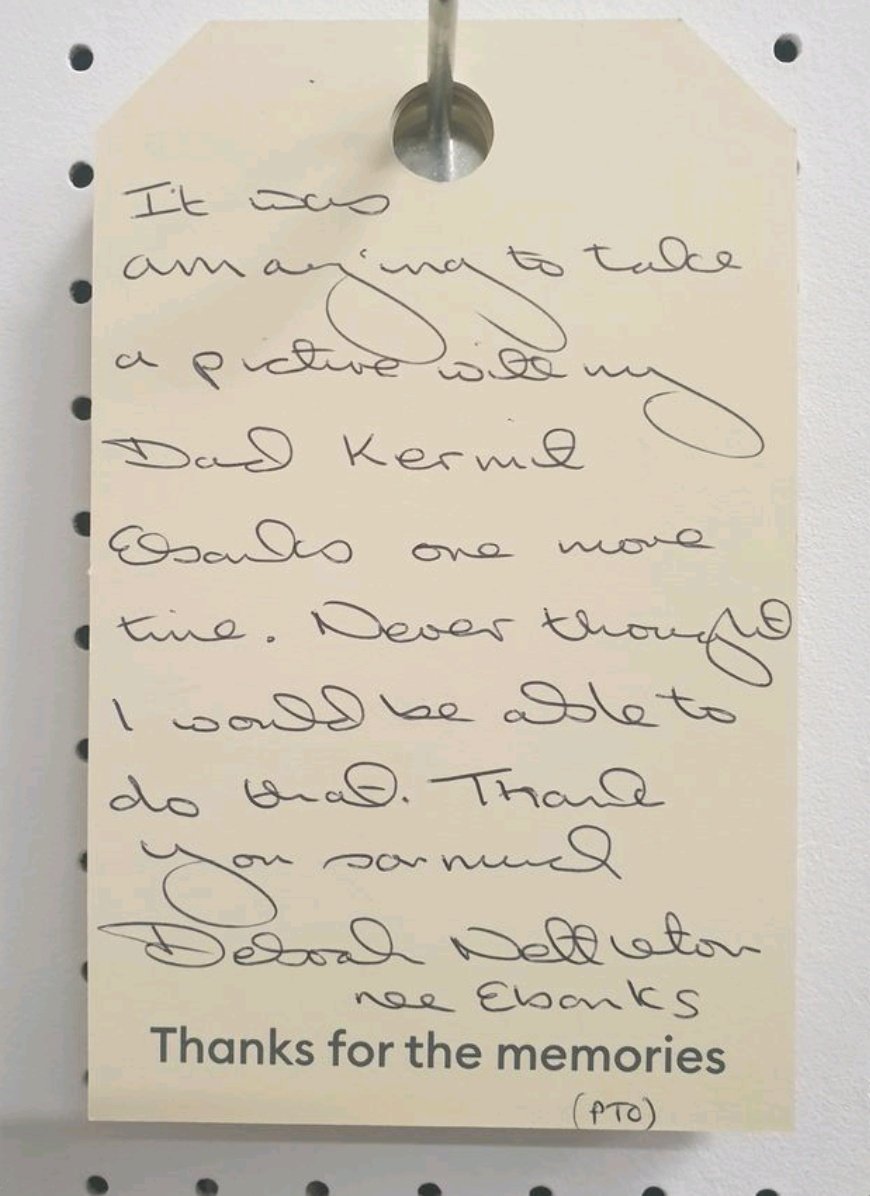 It was
amazing to take
a picture with my
Dad Kermit
Ebanks one more
time. Never thought
I would be able to
do that. Thank
you so much
Deborah Nettleton
nee Ebanks
Thanks for the memories
(PTO)